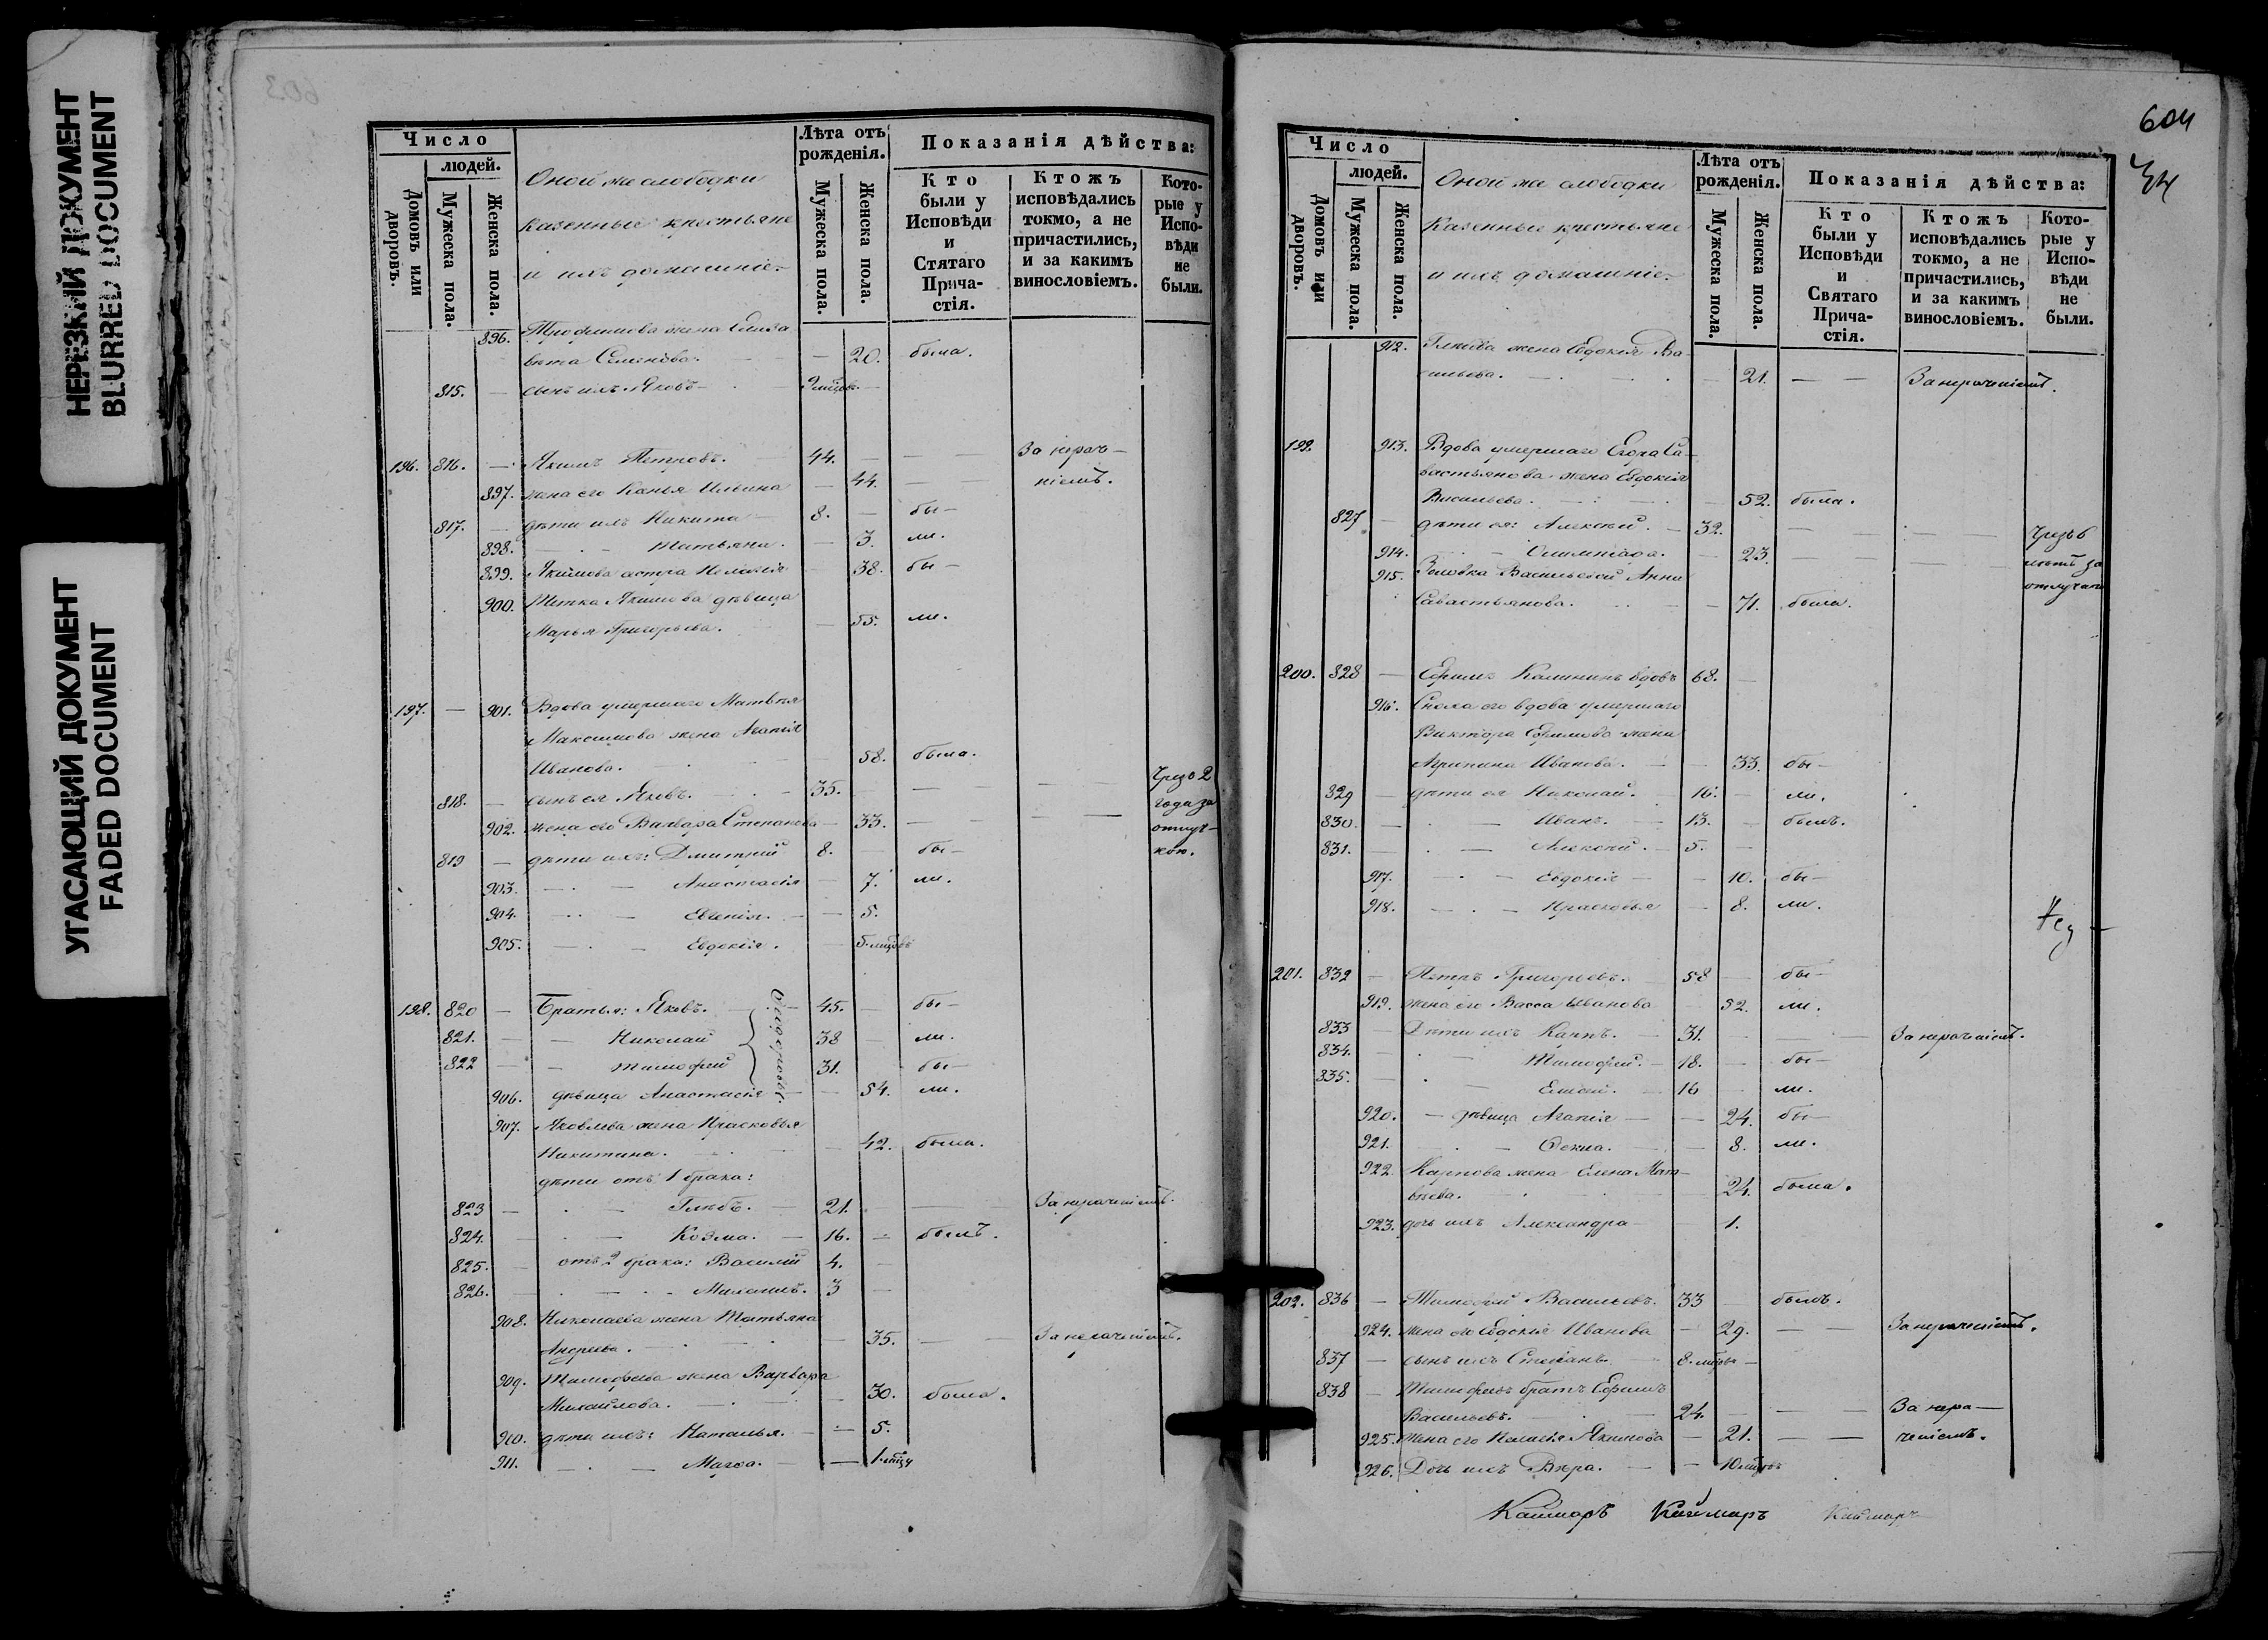 НЕРЕЗКИЙ ДОКУМЕНТ
BLURRED DOCUMENT
УГАСАЮЩИЙ ДОКУМЕНТ
FADED DOCUMENT
Число
людей.
Домовъ или дворовъ.
Мужеска пола.
Женска пола.
Оной же слободки
казенные крестьяне
и ихъ домашніе
Лѣта отъ рожденія.
Мужеска пола.
Женска пола.
Показанія дѣйства:
Кто были у Исповѣди и Стятаго Причастія.
Ктожъ исповѣдались токмо, а не причастились, и за какимъ винословіемъ.
Которые у Исповѣди не были.
896. Трофимова жена Елиза
вета Семенова. — 20. была.
815. — сынъ ихъ Яковъ —
196. 816. — Якимъ Петровъ. 44. — — За нерач—
897. жена его Ильина — 44. — ніемъ.
817. — дѣти ихъ Никита 8. — бы—
898. — Татьяна. — 3. ли.
899. Якимова сестра Пелагія 38. бы—
900. Тетка Якимова дѣвица
Марья Григорьева. — 55. ли.
197. — 901. Вдова умершаго Матвѣя
Максимова жена Агапія
Иванова. 58. была.
818. — сынъ ея Яковъ. 35. — — Чрезъ 2
902. жена его Варвара Степанова — 33. — — года за
819 — дѣти ихъ: Дмитрій 8. — бы— отлуч—
903. — Анастасія — 7. ли. кою.
904. — Евгенія. — 5.
905. — Евдокія. 5. мцовъ
198. 820 — Братья: Яковъ. 45. — бы—
821. — Николай 38 — ли.
822 — Тимофей 31. бы—
906. дѣвица Анастасія — 54. ли.
907. Яковлева жена Прасковья
Никитина. — 42. была.
дѣти отъ 1 брака:
823 — Глѣбъ. — 21. — За нерачніемъ.
824. — Козма. — 16. — былъ.
825. — отъ 2 брака: Василій 4. —
826. — Михаилъ. 3 —
908. Николаева жена Татьяна
Андреева. — 35. — За нерачніемъ.
909. Тимофеева жена Варвара
Михайлова. — 30. была.
910. дѣти ихъ: Наталья. — 5.
911. — Марѳа. — 1. мцу
604
Число
людей.
Домовъ или дворовъ.
Мужеска пола.
Женска пола.
Оной же слободки
Казенные крестьяне
и ихъ домашніе
Лѣта отъ рожденія.
Мужеска пола.
Женска пола.
Показанія дѣйства:
Кто были у Исповѣди и Святаго Причастія.
Ктожъ исповѣдались токмо, а не причастились, и за какимъ винословіемъ.
Которые у Исповѣди не были.
912. Глѣбова жена Евдокія Ва
сильева. — 21. — — За нераченіемъ.
199. 913. Вдова умершаго Егора Са—
вастьянова жена Евдокія
Васильева. — 52. была.
827 — дѣти ея: Алексей. — 32. — — Чрезъ 6
914. — Олимпіада. — 23. — — лѣтъ за
915. Золовка Васильевой Анна отлучкою
Савастьянова. — 71. была.
200. 828 — Ефимъ Калининъ вдовъ 68. —
916. Сноха его вдова умершаго
Виктора Ефимова жена
Агрипина Иванова. — 33. бы—
829 — дѣти ея Николай. 16. — ли.
830. — Иванъ. — 13. — былъ.
831. — Алексей. — 5. —
917. — Евдокія — 10. бы—
918. — Прасковья — 8. ли.
201. 832 — Петръ Григорьевъ. 58 — бы—
919. жена его Васса Иванова 52. ли.
833 — Дѣти ихъ Карпъ. — 31. — — За нераченіемъ.
834. — Тимофей. — 18. — бы—
835. — 16 — ли.
920. — дѣвица Агапія — 24. бы—
921. — Ѳекла. — 8. ли.
922. Карпова жена Елена Мат—
вѣева. 24. была.
923. дочь ихъ Александра 1.
202. 836 — Тимофей Васильевъ. 33 — былъ.
924. жена его Евдокія Иванова — 29. — — За нераченіемъ.
837 — сынъ ихъ Стефанъ. 8. мцовъ —
838 — Тимофеевъ братъ Ефимъ
Васильевъ. — 24. — — За нера—
925. жена его Пелагія Якимова — 21. — — ченіемъ.
926. Дочь ихъ Вѣра. — 10 мцовъ